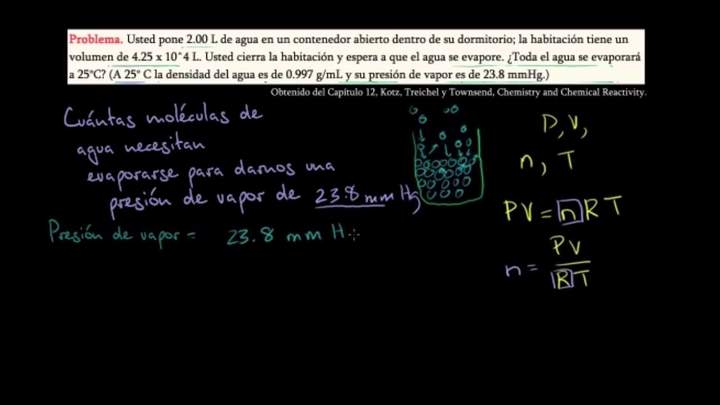 Problema. Usted pone 2.00 L de agua en un contenedor abierto dentro de su dormitorio; la habitación tiene un
volumen de 4.25 x 10^4 L. Usted cierra la habitación y espera a que el agua se evapore. ¿Toda el agua se evaporará
a 25°C? (A 25° C la densidad del agua es de 0.997 g/mL y su presión de vapor es de 23.8 mmHg.)
Obtenido del Capítulo 12, Kotz, Treichel y Townsend, Chemistry and Chemical Reactivity.
Cuántas moléculas de
agua necesitan
evaporarse para darnos una
presión de vapor de 23.8 mm Hg
Presión de vapor = 23.8 mm H
P, V,
n, T
PV = n R T
n = PV
RT